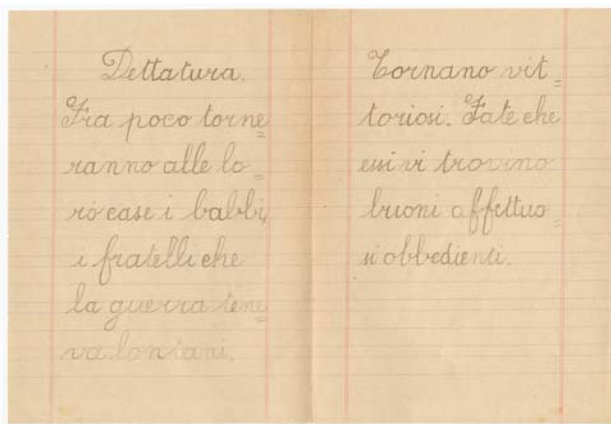 Dettatura.
Fra poco torne=
ranno alle lo=
ro case i babbi,
i fratelli che
la guerra tene=
va lontani.
Tornano vit=
toriosi. Fate che
essi vi trovino
buoni affettuo=
si obbedienti.